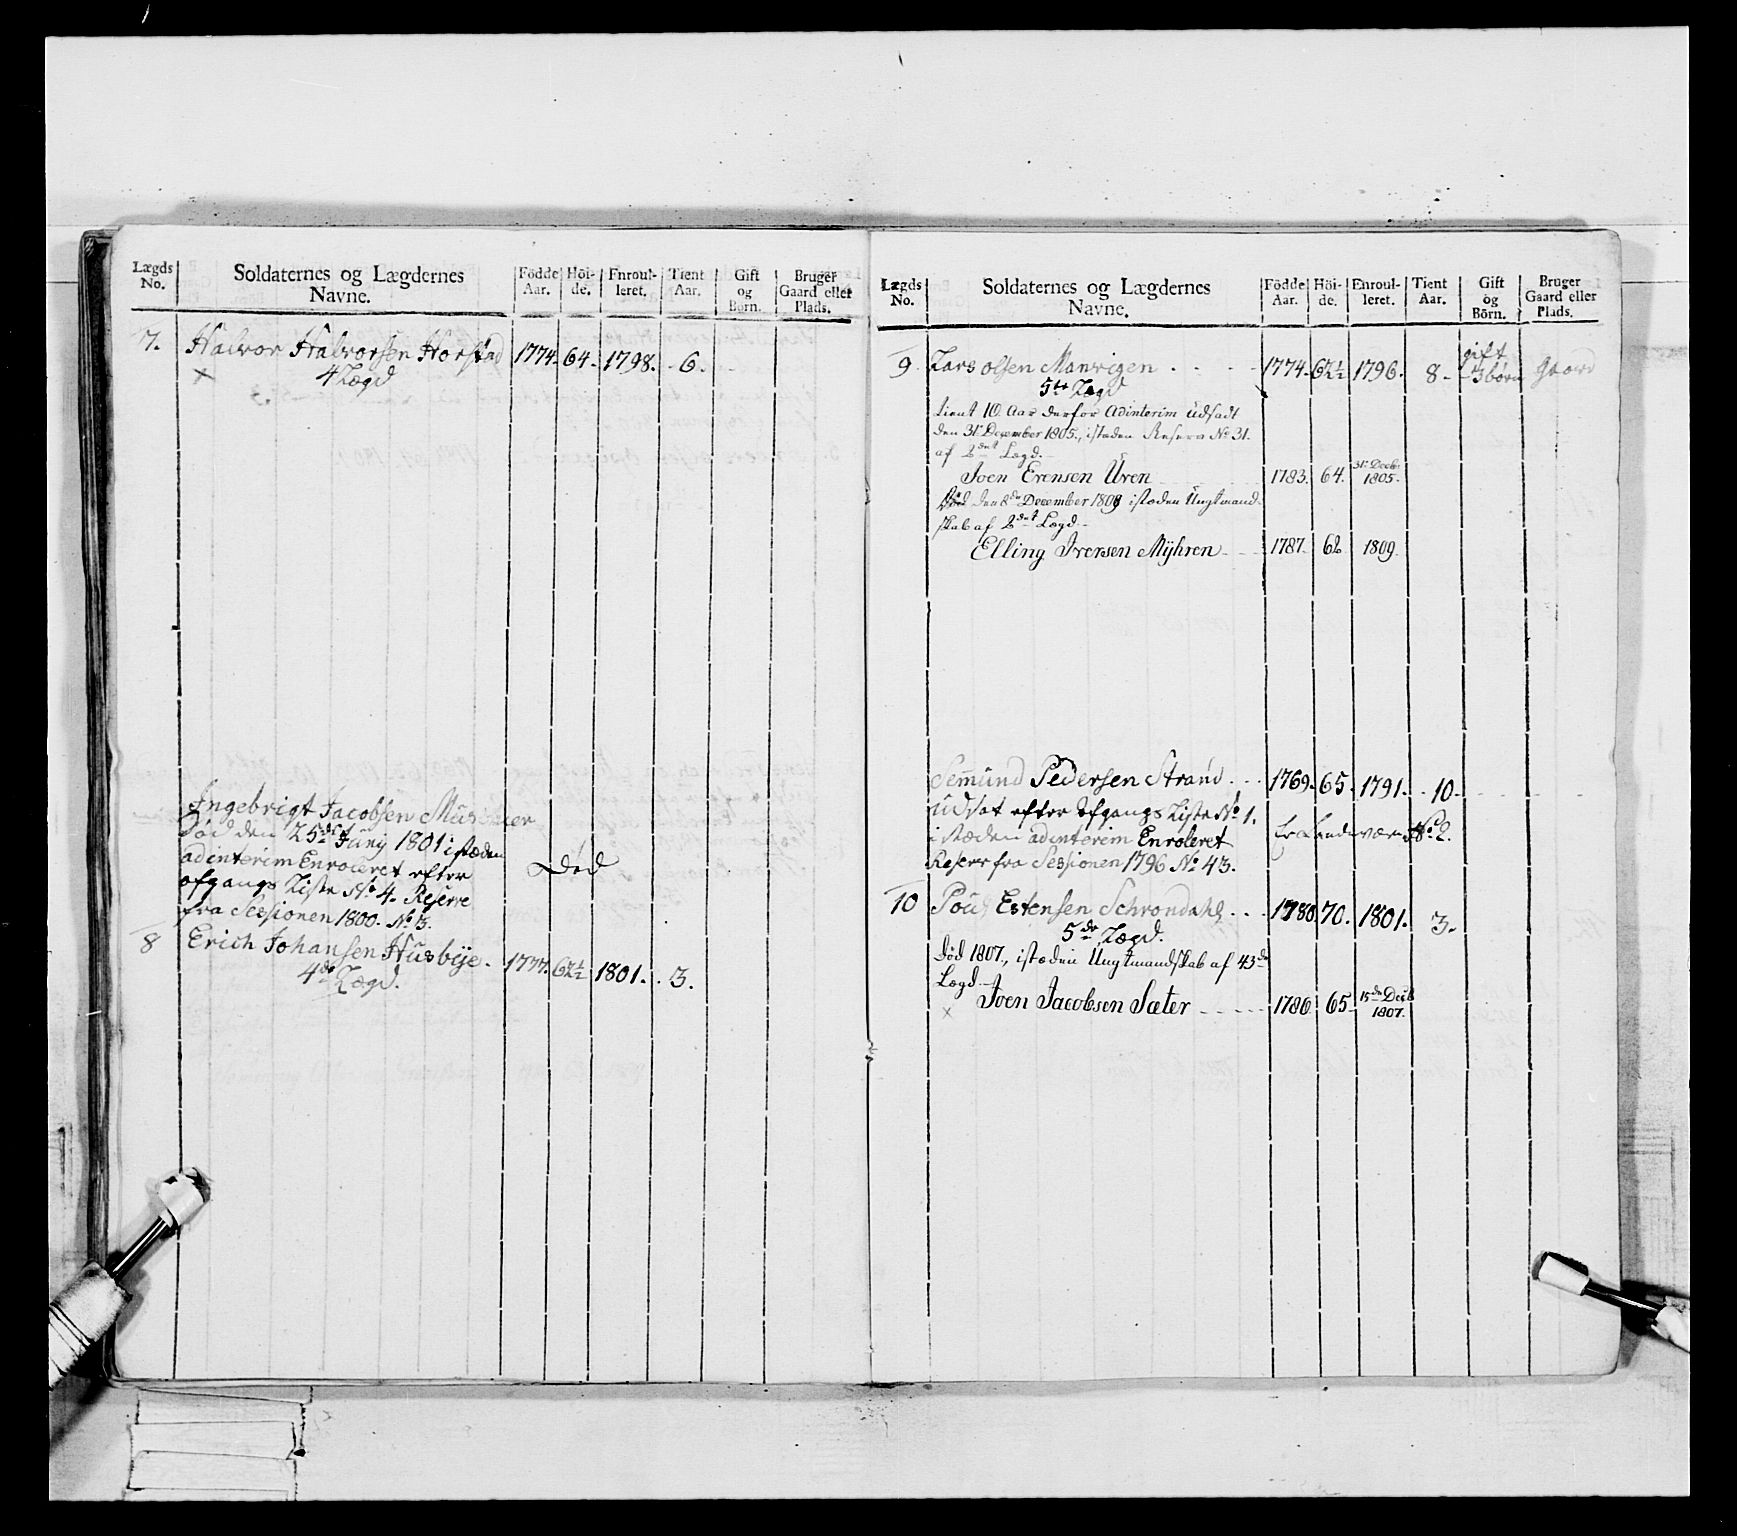 Lægds No.
Soldaternes og Lægdernes Navne.
Födde Aar.
Höi-de.
Enroul-leret.
Tient Aar.
Gift og Börn.
Bruger Gaard eller Plads.
7. Halvor Halvorsen Horstad 1774. 64. 1798. 6.
4 Lægd
Ingebrigt Jacobsen
Död den 25de Juny 1801 istæden
adinterim Enroleret efter Död
afgangs Liste No 4. Reserve
fra Sessionen 1800. No 3.
8 Erich Johansen Husbye. 1777. 62½ 1801. 3.
4de Lægd.
Lægds No.
Soldaternes og Lægdernes Navne.
Födde Aar.
Höi-de.
Enroul-leret.
Tient Aar.
Gift og Börn.
Bruger Gaard eller Plads.
9 Lars olsen 1774. 62½ 1796. 8. gift 3 börn Gaard
5te Lægd
tient 10 Aar derfor Adinterim Udsadt
den 31te December 1805., istæden Reserv No 31.
af 2det Lægd.
Joen Erensen Uren 1783. 64. 31te Decbr 1805.
Död den 8de December 1809 istæden Ungtmand-
skab af 2det Lægd.
Elling Iversen Myhren 1787. 62 1809.
Semund Pedersen Strand 1769. 65. 1791. 10.
Udsat efter Afgangs Liste No 1.
istæden adinterim Enroleret No 2.
Reserv fra Sessionen 1796 No 43.
10 Estensen Schrondahl 1780 70. 1801. 3.
5de Lægd.
Död 1807, istæden Ungtmandskab af 43de
Lægd.
Joen Jacobsen Sæter 1786. 65. 15de Decbr 1807.